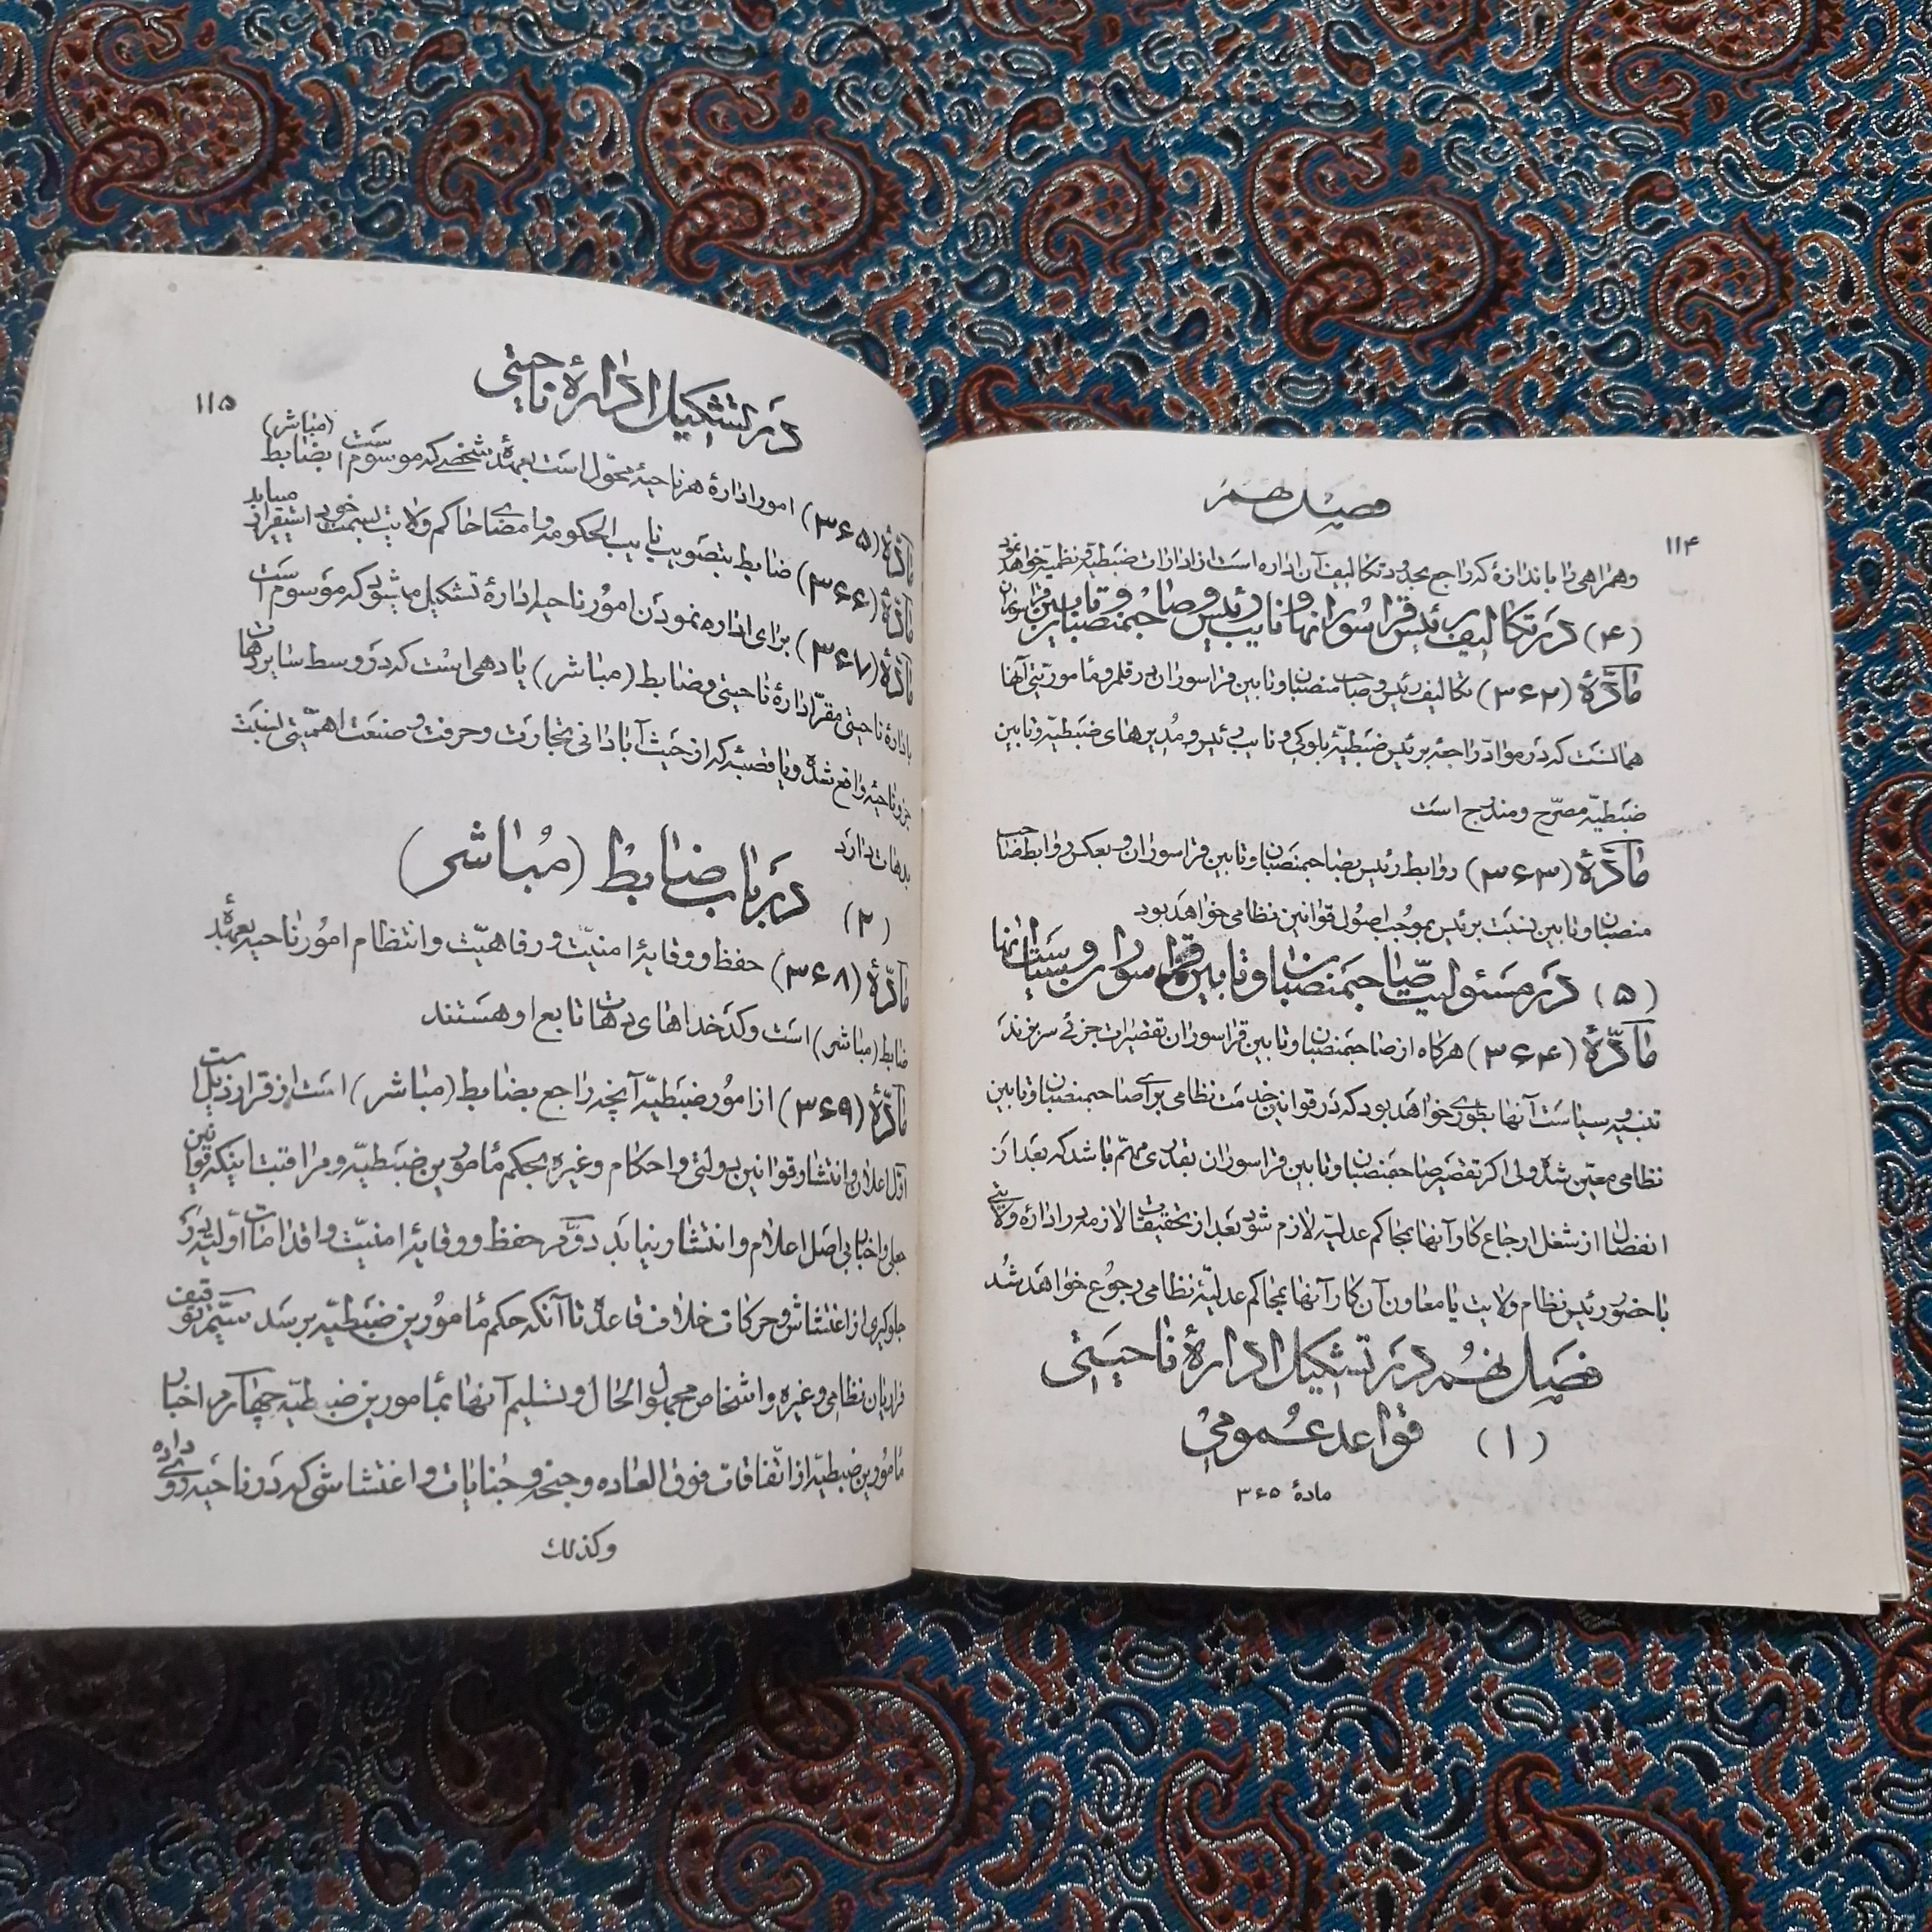 فصل نهم
۱۱۴
و همراهی را باندازهٔ که راجع بحدود تکالیف آن اداره است از ادارات ضبطیه و نظمیه خواهد نمود
(۴) در تکالیف رئیس قراسورانها و نایب رئیس و صاحبمنصبان و تابین قراسوران
مادّهٔ (۳۶۲) تکالیف رئیس و صاحب منصبان و تابین قراسوران در قلمرو مأموریتی آنها
همانست که در موادّ راجعه برئیس ضبطیّهٔ بلوکی و نایب رئیس و مدیرهای ضبطیّه و تابین
ضبطیّه مصرّح و مندرج است
مادّهٔ (۳۶۳) روابط رئیس بصاحبمنصبان و تابین قراسوران و بعکس روابط صاحب
منصبان و تابین نسبت برئیس بموجب اصول قوانین نظامی خواهد بود
(۵) در مسئولیت صاحبمنصبان و تابین قراسوران و سیاست آنها
مادّهٔ (۳۶۴) هرگاه از صاحبمنصبان و تابین قراسوران تقصیرات جزئی سر زند
تنبیه و سیاست آنها بطوری خواهد بود که در قوانین خدمت نظامی برای صاحبمنصبان و تابین
نظامی معیّن شده ولی اگر تقصیر صاحبمنصبان و تابین قراسوران بقدری مهمّ باشد که بعد از
انفصال از شغل ارجاع کار آنها بمحاکم عدلیّه لازم شود بعد از تحقیقات لازمه در ادارهٔ ولایتی
با حضور رئیس نظام ولایت یا معاون آن کار آنها بمحاکم عدلیّهٔ نظامی رجوع خواهد شد
فصل نهم در تشکیل ادارهٔ ناحیتی
(۱) قواعد عمومی
مادهٔ ۳۶۵
در تشکیل ادارهٔ ناحیتی
۱۱۵
مادّهٔ (۳۶۵) امور ادارهٔ هر ناحیه محوّل است بعهدهٔ شخصی که موسوم است بضابط (مباشر)
مادّهٔ (۳۶۶) ضابط بتصویب نایب الحکومه و امضای حاکم ولایت بسمت خود استقرار مییابد
مادّهٔ (۳۶۷) برای اداره نمودن امور ناحیه ادارهٔ تشکیل میشود که موسوم است
بادارهٔ ناحیتی مقرّ ادارهٔ ناحیتی و ضابط (مباشر) یا دهی است که در وسط سایر دهات
جزو ناحیه واقع شده و یا قصبهٔ که از حیث آبادانی تجارت و حرفت و صنعت اهمّیتی نسبت
بدهات دارد
(۲) در باب ضابط (مباشر)
مادّهٔ (۳۶۸) حفظ و وقایهٔ امنیّت و رفاهیّت و انتظام امور ناحیه بعهدهٔ
ضابط (مباشر) است و کدخداهای دهات تابع او هستند
مادّهٔ (۳۶۹) از امور ضبطیّه آنچه راجع بضابط (مباشر) است از قرار ذیل است
اوّل اعلان و انتشار قوانین دولتی و احکام و غیره بحکم مأمورین ضبطیّه و مراقبت اینکه قوانین
جعلی و اخبار بی اصل اعلام و انتشار نیابد دوّم حفظ و وقایهٔ امنیّت و اقدامات اوّلیّه در
جلوگیری از اغتشاش و حرکات خلاف قاعده تا آنکه حکم مأمورین ضبطیّه برسد سیّم توقیف
فراریان نظامی و غیره و اشخاص مجهول الحال و تسلیم آنها بمأمورین ضبطیّه چهارم اخبار
مأمورین ضبطیّه از اتّفاقات فوق العاده و جنحه و جنایات و اغتشاشی که در ناحیه روی داده
و کذلک